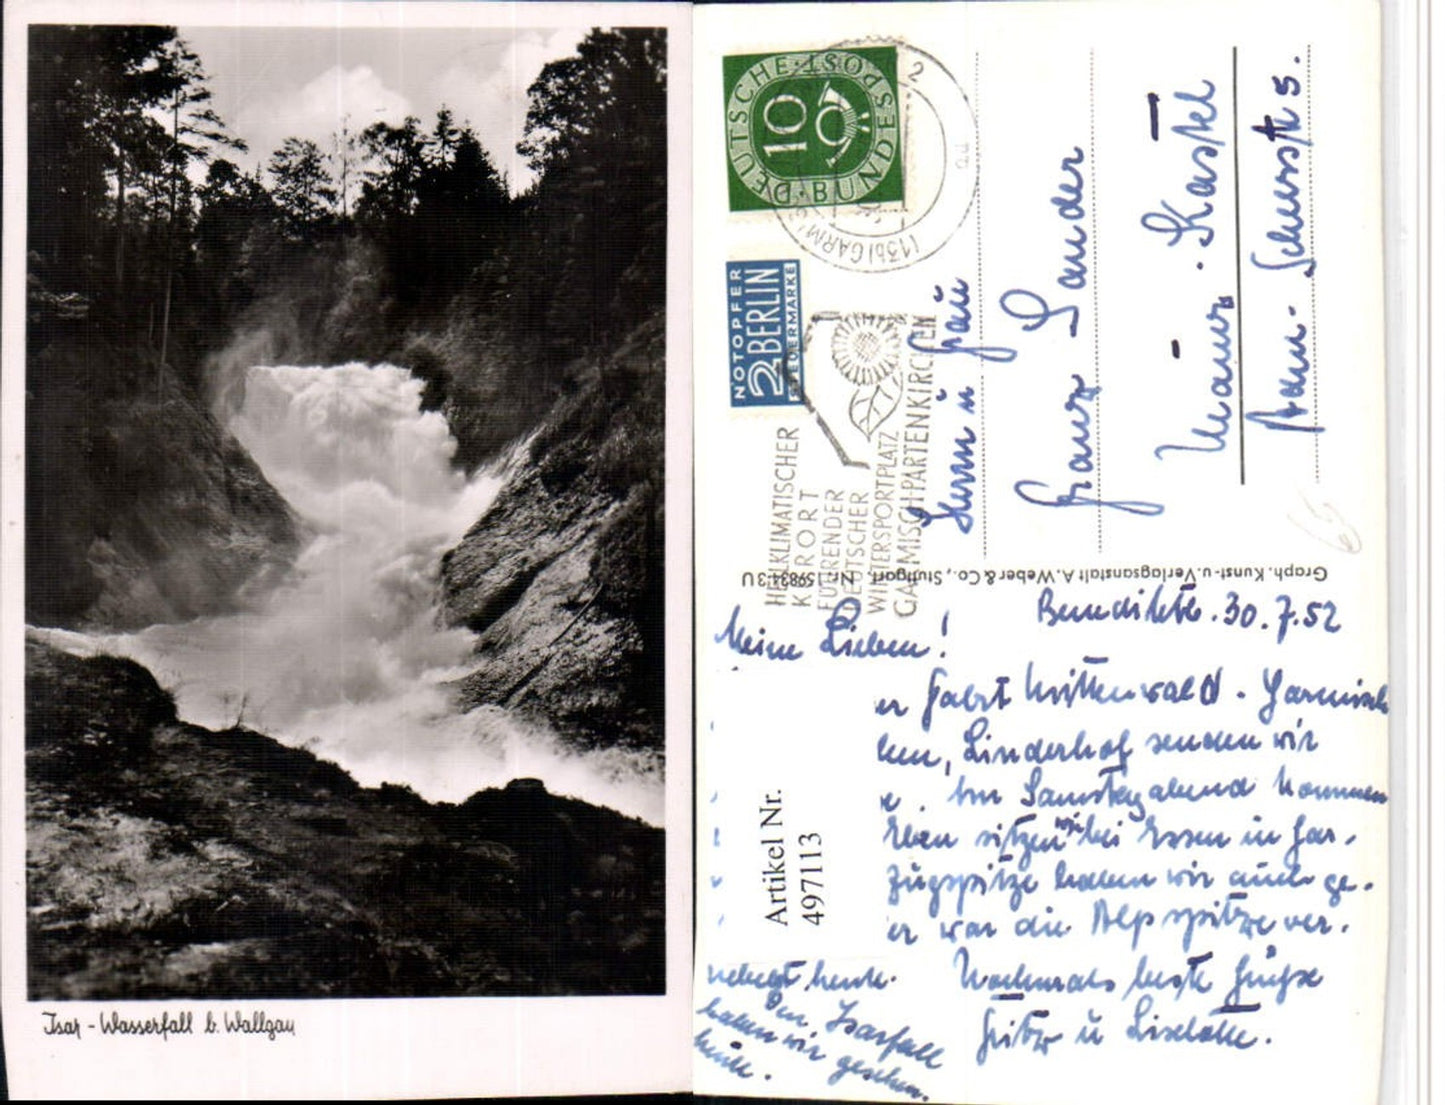 Isar-Wasserfall b. Wallgau
DEUTSCHE BUNDESPOST
10
2
(13b) GARM
NOTOPFER
2 BERLIN
STEUERMARKE
HEILKLIMATISCHER
KURORT
FÜHRENDER
DEUTSCHER
WINTERSPORTPLATZ
GARMISCH-PARTENKIRCHEN
Herrn u Frau
Franz Sander
Mainz-Kastel
5.
Graph. Kunst- u. Verlagsanstalt A. Weber & Co., Stuttgart, Nr. 159834 3 U
30.7.52
Meine Lieben!
er Fahrt Mittenwald - Garmisch
ken, Linderhof senden wir
e. Am Samstag abend kommen
Eben sitzen wir bei Essen in Gar-
Zugspitze haben wir auch ge-
er war die Alpspitze ver-
nebelt heute. Nochmals beste Grüße
Fritz u Liselotte.
Den Isarfall
haben wir gesehen.
heute.
Artikel Nr.
497113